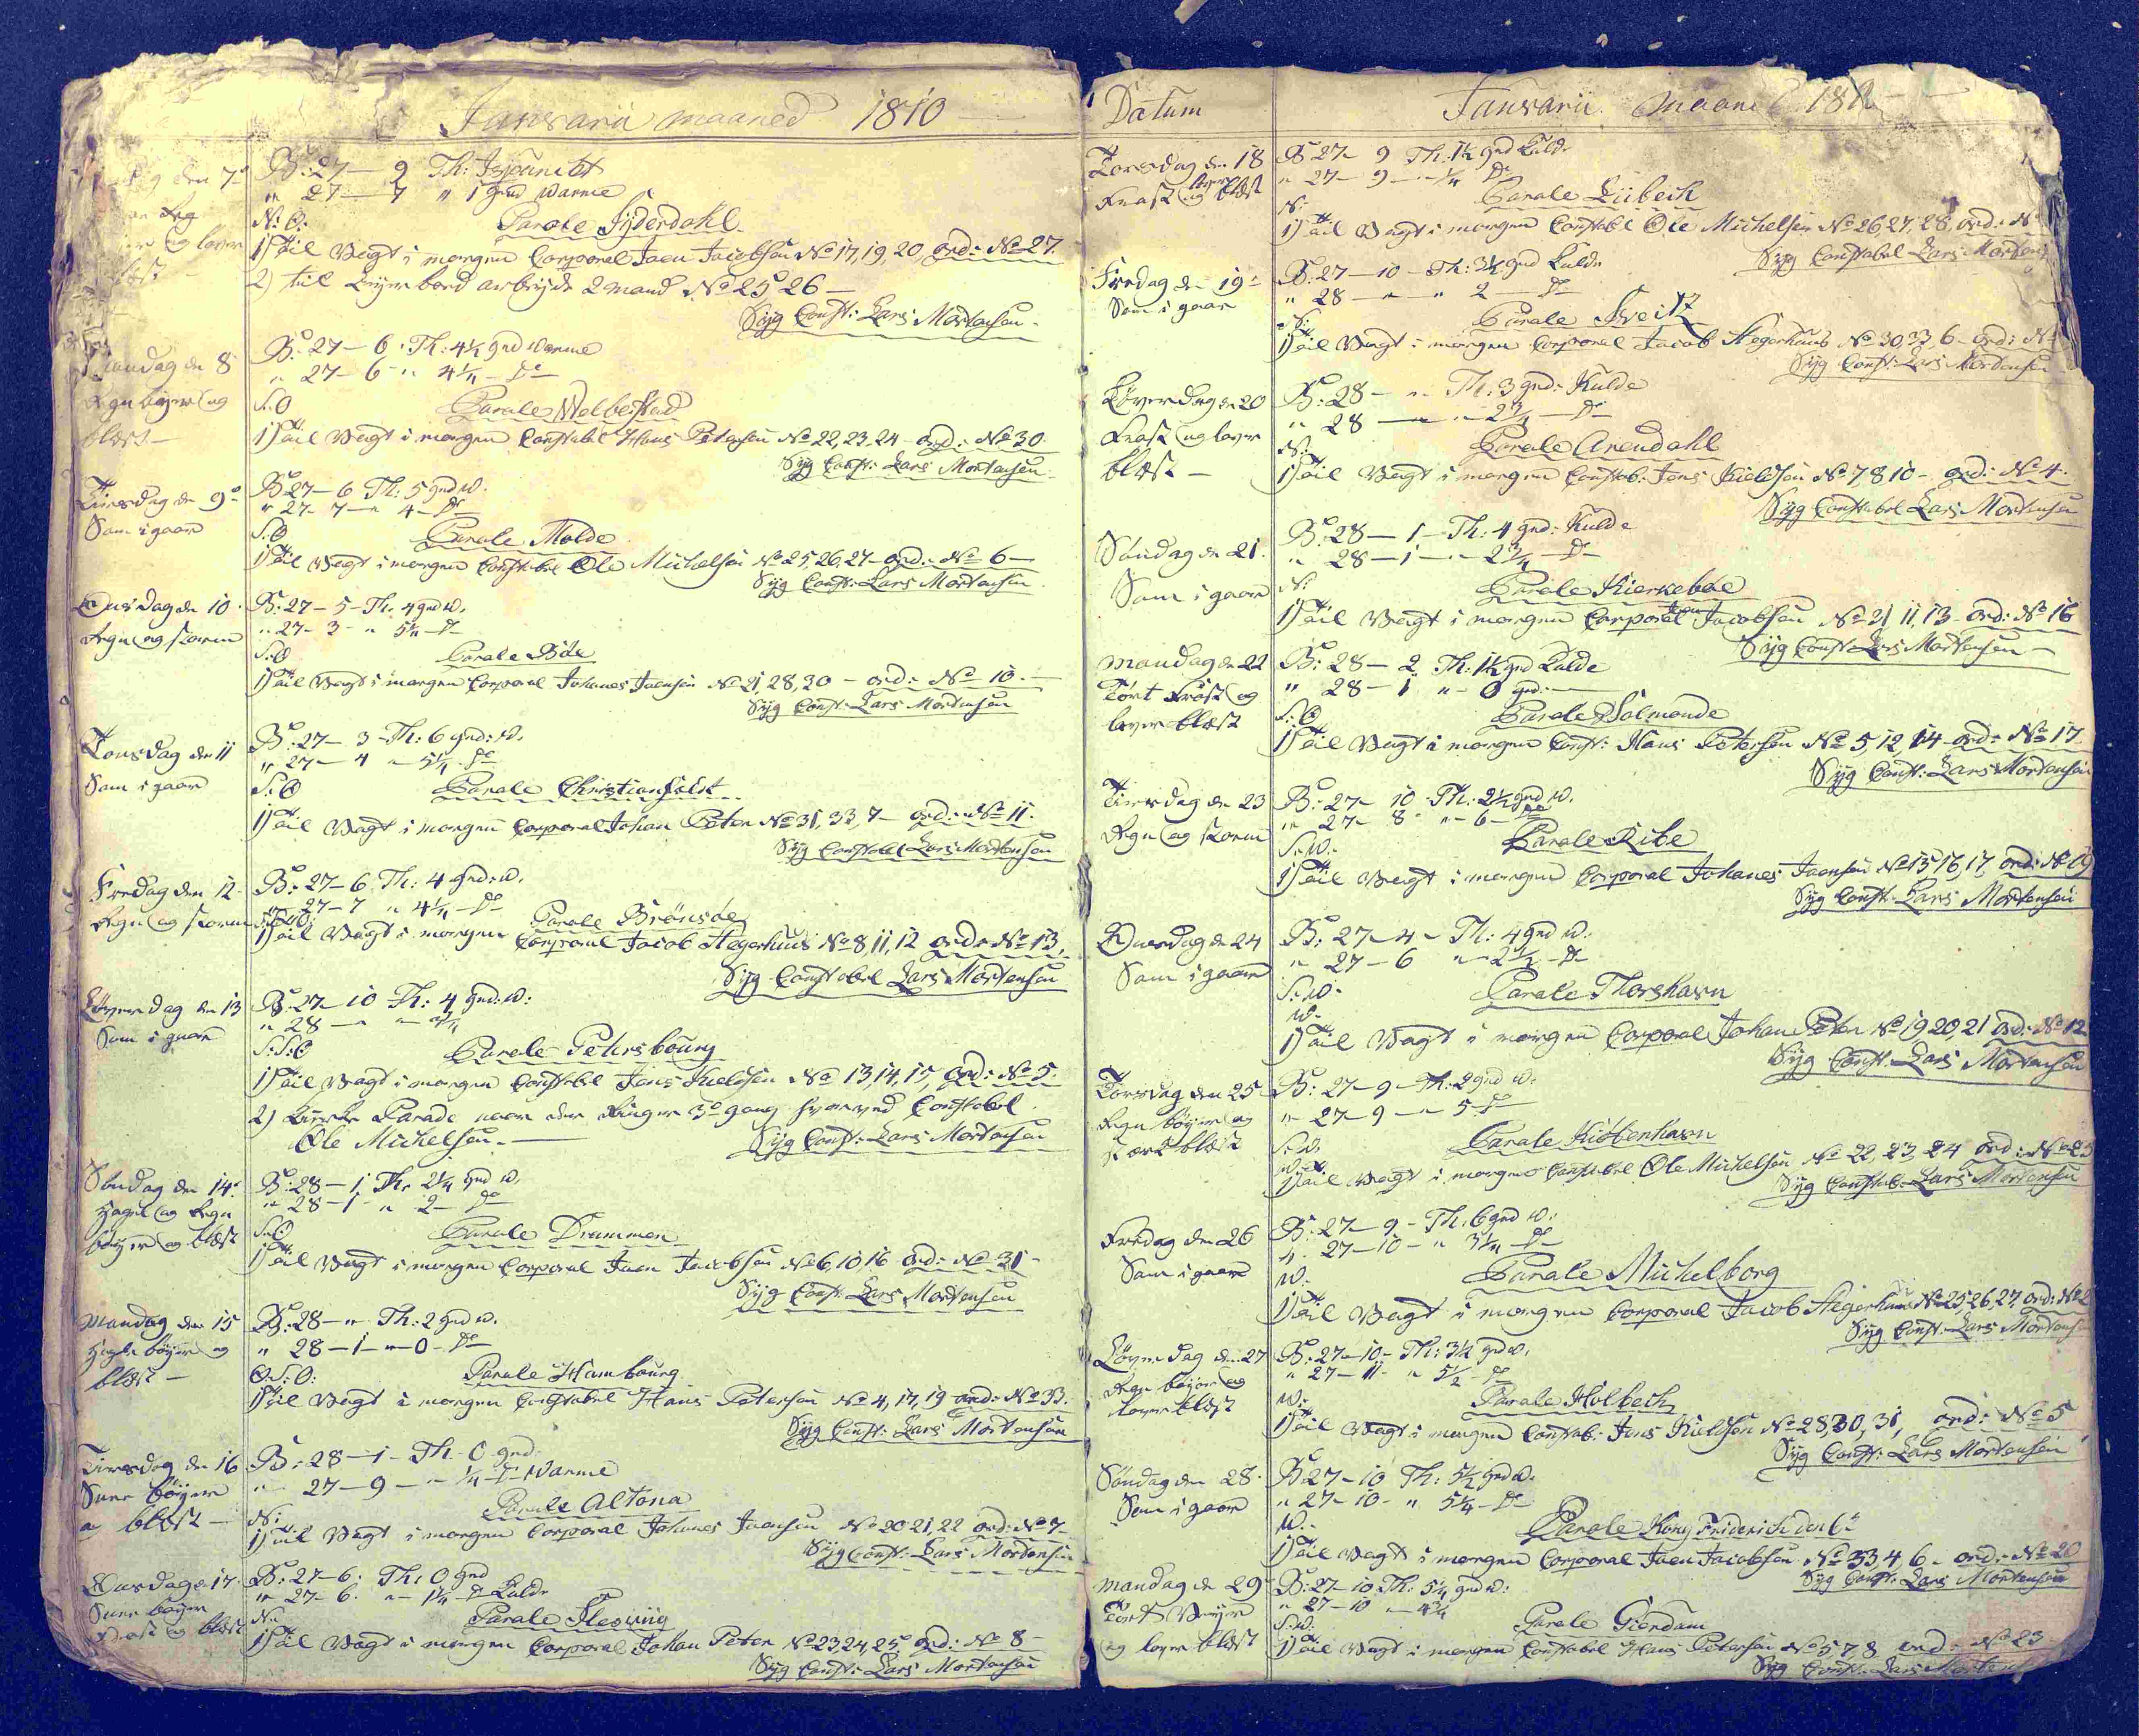 Januarii maaned 1810
den 7de
B: 27 — 9 Th: Ispunctet
" 27 — 7 " 1 grad Warme
N: O:
Parole Fyderdahl
og lover
blæst
1) Til Vagt i morgen Corporal Joen Jacobsen No 17, 19, 20 ord: No 27.
2) til Leyerbord arbeyde 2 Mand No 25, 26 —
Syg Const: Lars Mortensen
Mandag den 8
B: 27 — 6 Th: 4¼ grad Warme
" 27 — 6 " 4¼ — Do
Regn bøyer og
blæst —
S: O
Parole Welbestad
1) Til Vagt i morgen Constabel Hans Petersen No 22, 23, 24 ord: No 30.
Syg Const: Lars Mortensen
Tirsdag den 9de
Som i gaar
B: 27 — 6 Th: 5 grad W.
" 27 — 7 — " 4 — Do
S: O
Parole Molde
1) Til Vagt i morgen Constabel Ole Michelsen No 25, 26, 27 ord: No 6 —
Syg Const: Lars Mortensen
Onsdag den 10
Regn og storm
B: 27 — 5 — Th: 4 grad W.
" 27 — 3 — " 5¼ — Do
S: O
Parole Böe
1) Til Vagt i morgen Corporal Johanes Joensen No 21, 28, 30 — ord: No 10. —
Syg Const: Lars Mortensen
Torsdag den 11
Som i gaar
B: 27 — 3 — Th: 6 grad: W.
" 27 — 4 — 5¼ Do
S: O
Parole Christiansfeldt
1) Til Vagt i morgen Corporal Johan Peter No 31, 33, 7 — ord: No 11.
Syg Constabel Lars Mortensen
Fredag den 12
Regn og storm
B: 27 — 6 Th: 4 grad: W.
" 27 — 7 " 4¼ — Do
Parole Brönsöe
1) Til Vagt i morgen Corporal Jacob Hegerhuus No 8, 11, 12 ord: No 13.
Syg Constabel Lars Mortensen
Løverdag den 13
Som i gaar
B: 27 — 10 Th: 4 grad: W:
" 28 — " — "
S: S: O
Parole Petersbourg
1) Til Vagt i morgen Constabel Jens Kieldsen No 13, 14, 15, ord: No 5.
2) Kierke Parade naar der Ringer 3de gang hvorved Constabel
Ole Michelsen. —
Syg Const: Lars Mortensen
Söndag den 14de
Hagel og Regn
bøyer og blæst
B: 28 — 1 Th: 2¼ grad W.
" 28 — 1 " 2 — Do
S: O
Parole Drammen
1) Til Vagt i morgen Corporal Joen Jacobsen No 6, 10, 16 ord: No 31 —
Syg Const: Lars Mortensen
Mandag den 15
bøyer og
blæst —
B: 28 — " Th: 2 grad W.
" 28 — 1 — " 0 — Do
O: S: O:
Parole Hambourg
1) Til Vagt i morgen Constabel Hans Petersen No 4, 17, 19 ord: No 33.
Syg Const: Lars Mortensen
Tirsdag den 16
Snee bøyer
blæst —
B: 28 — 1 — Th: 0 grad
" 27 — 9 — " ¼ Do Warme
N:
Parole Altona
1) Til Vagt i morgen Corporal Johanes Joensen No 20, 21, 22 ord: No 7
Syg Const: Lars Mortensen
Onsdag den 17
Snee bøyer
Frost og blæst
B: 27 — 6 Th: 0 grad
" 27 — 6 " — 1¼ Do Kulde
N:
Parole Sleswiig
1) Til Vagt i morgen Corporal Johan Peter No 23, 24, 25 ord: No 8 —
Syg Const: Lars Mortensen
Datum
Januarii maaned 1810
Torsdag den 18
Frost og lover blæst
B: 27 — 9 Th: 1½ grad Kulde
" 27 — 9 — " ¼ Do
N:
Parole Lübech
1) Til Vagt i morgen Constabel Ole Michelsen No 26, 27, 28, ord: N
Syg Constabel Lars Mortens
Fredag den 19
Som i gaar
B: 27 — 10 — Th: 3½ grad Kulde
" 28 — " — " 2 — Do
N:
Parole Sveitz
1) Til Vagt i morgen Corporal Jacob Hegerhuus No 30, 33, 6 — ord: N
Syg Const: Lars Mortensen
Løverdag den 20
Frost og lover
blæst —
B: 28 — " — Th: 3 grad: Kulde
" 28 — " — " 2¾ — Do
N:
Parole Arendahl
1) Til Vagt i morgen Constab: Jens Kieldsen No 7 8 10 — ord: No 4.
Syg Constabel Lars Mortensen
Söndag den 21.
Som i gaar
B: 28 — 1 — Th: 4 grad: Kulde
" 28 — 1 — " 2¾ — Do
N:
Parole Kierkeböe
1) Til Vagt i morgen Corporal Joen Jacobsen No 21 11, 13 — ord: No 16
Syg Const: Lars Mortensen —
Mandag den 22
Tört Frost og
lover blæst
B: 28 — 2 Th: 1½ grad Kulde
" 28 — 1 " — 0 grd: —
S: O
Parole Solmonde
1) Til Vagt i morgen Const: Hans Petersen No 5, 12, 14 ord: No 17
Syg Const: Lars Mortensen
Tirsdag den 23
Regn og storm
B: 27 — 10 — Th: 2½ grad W.
" 27 — 8 — " — 6 — Do
S: W.
Parole Ribe
1) Til Vagt i morgen Corporal Johanes Joensen No 15, 16, 17, ord: No 19
Syg Const: Lars Mortensen
Onsdag den 24
Som i gaar
B: 27 — 4 — Th: 4 grad W.
" 27 — 6 " — 2½ — Do
S: W.
W.
Parole Thorshavn
1) Til Vagt i morgen Corporal Johan Peter No 19, 20, 21 ord: No 12
Syg Const: Lars Mortensen
Torsdag den 25
Regn bøyer og
stærk blæst
B: 27 — 9 — Th: 2 grad W.
" 27 — 9 — " 5 Do
S: W.
Parole Kiöbenhavn
1) Til Vagt i morgen Constabel Ole Michelsen No 22, 23, 24 ord: No 25
Syg Constab: Lars Mortensen
Fredag den 26
Som i gaar
B: 27 — 9 — Th: 6 grad W:
" 27 — 10 — " 3¼ — Do
W.
Parole Michelborg
1) Til Vagt i morgen Corporal Jacob Hegerhuus No 25, 26, 27, ord: No 2
Syg Const: Lars Mortens
Løverdag den 27
Regn bøyer og
lover blæst
B: 27 — 10 — Th: 3½ grad W.
" 27 — 11 — " 5½ — Do
W.
Parole Holbech
1) Til Vagt i morgen Constab: Jens Kieldsen No 28, 30, 31, ord: No 5
Syg Const: Lars Mortensen
Söndag den 28
Som i gaar
B: 27 — 10 Th: 5½ grad W.
" 27 — 10 — " 5¼ — Do
W.
Parole Kong Friderich den 6te
1) Til Vagt i morgen Corporal Joen Jacobsen No 33 4, 6 — ord: No 20
Syg Const: Lars Mortensen
Mandag den 29
Tört Veyer
og lover blæst
B: 27 — 10 Th: 5¼ grad W:
" 27 — 10 " — 4¾
S: W.
Parole Gierdam
1) Til Vagt i morgen Constabel Hans Petersen No 5, 7, 8 ord: No 23
Syg Const: Lars Mortens